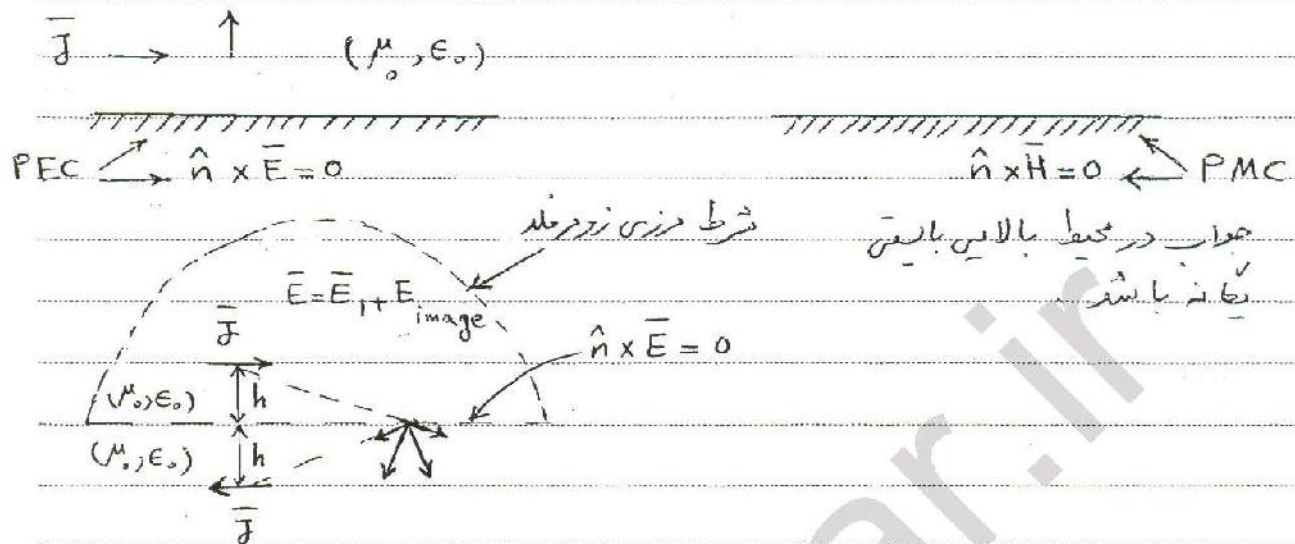 J̅ → (μ₀, ϵ₀)
PEC n̂ × E̅ = 0
n̂ × H̅ = 0 PMC
شرط مرزی زومرفلد
جواب در محیط بالایی بایستی
یگانه باشد.
E̅ = E̅₁ + E_image
J̅
n̂ × E̅ = 0
(μ₀, ϵ₀) h
(μ₀, ϵ₀) h
J̅
ar.ir